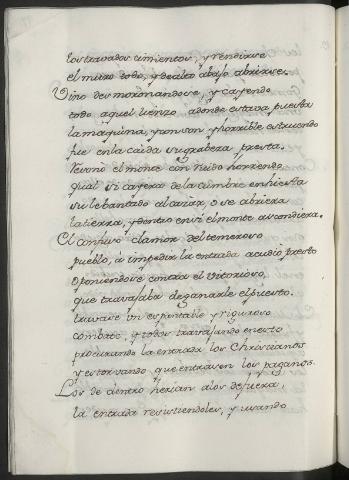 los travados cimientos, y rendirse
el muro todo, y de alto abajo abrirse.
Vino desmoronandose, y cayendo
todo aquel lienzo adonde estava puesta
la maquina, y con son y horrible estruendo
fue en la caida su grabeza presta.
Tembló el monte con ruido horrendo,
qual si cayera de la cumbre enhiesta
su lebantado alcazar, o se abriera
la tierra, y dentro en si el monte ascondiera.
El confuso clamor del temeroso
pueblo, a impedir la entrada acudió presto
oponiendose contra el vitorioso,
que travajaba de ganarle el puesto.
travase un espantable y riguroso
combate, y todos travajando en esto
procurando la entrada los Christianos
y estorvando que entrasen los paganos.
Los de dentro herian a los de fuera,
la entrada resistiendoles, y usando